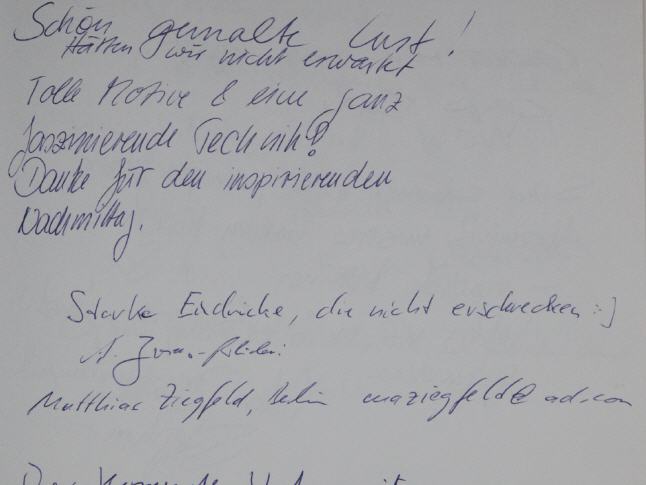 Schön gemalte Lust!
Hätten wir nicht erwartet
Tolle Motive & eine ganz
faszinierende Technik!
Danke für den inspirierenden
Nachmittag.
Starke Eindrücke, die nicht erschrecken :-]
Matthias Ziegfeld, Berlin maziegfeld@